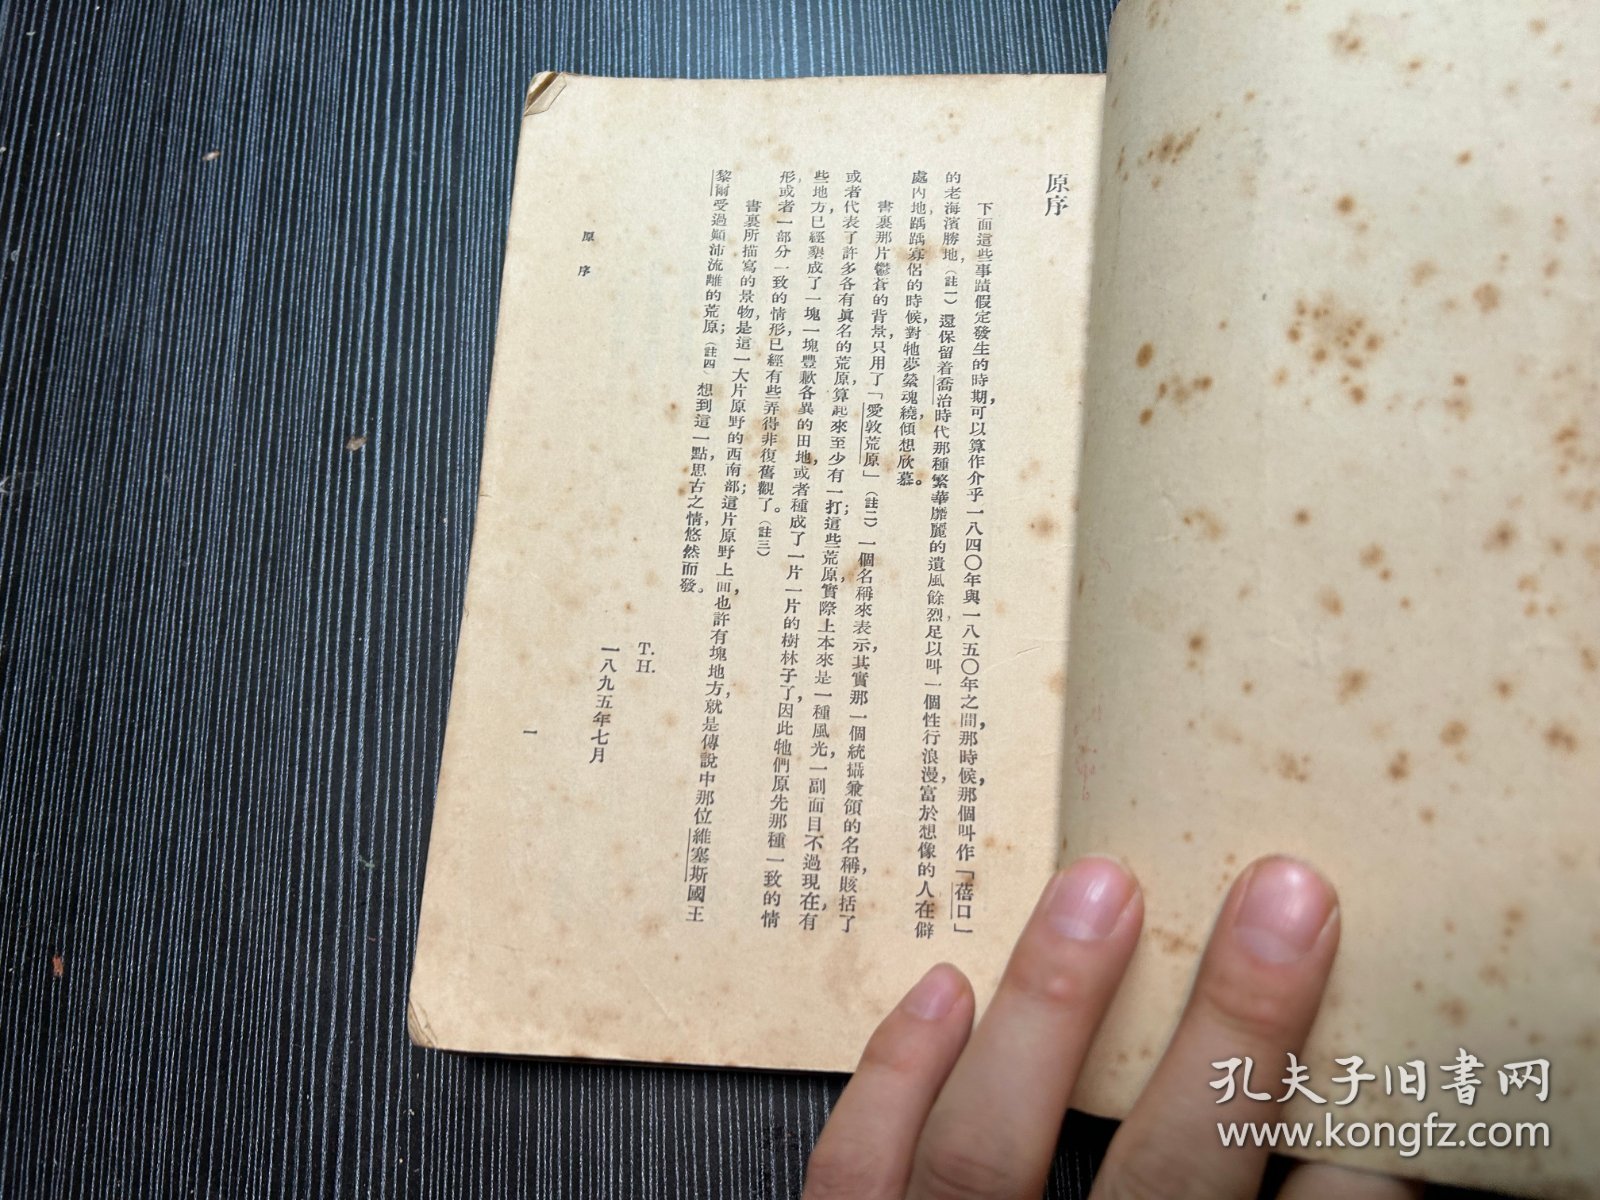 原序
下面這些事蹟假定發生的時期,可以算作介乎一八四〇年與一八五〇年之間,那時候,那個叫作「蓓口」
的老海濱勝地,(註一)還保留着喬治時代那種繁華靡麗的遺風餘烈,足以叫一個性行浪漫,富於想像的人在僻
處內地,踽踽寡侶的時候,對牠夢縈魂繞,傾想欣慕。
書裏那片鬱蒼的背景,只用了「愛敦荒原」(註二)一個名稱來表示,其實那一個統攝兼領的名稱,賅括了
或者代表了許多各有眞名的荒原,算起來至少有一打;這些荒原,實際上本來是一種風光,一副面目,不過現在,有
些地方,已經墾成了一塊一塊豐歉各異的田地,或者種成了一片一片的樹林子了,因此牠們原先那種一致的情
形,或者一部分一致的情形,已經有些弄得非復舊觀了。(註三)
書裏所描寫的景物,是這一大片原野的西南部;這片原野上面,也許有塊地方,就是傳說中那位維塞斯國王
黎爾受過顚沛流離的荒原;(註四)想到這一點,思古之情,悠然而發。
T. H.
一八九五年七月
原序
一
孔夫子旧書网
www.kongfz.com